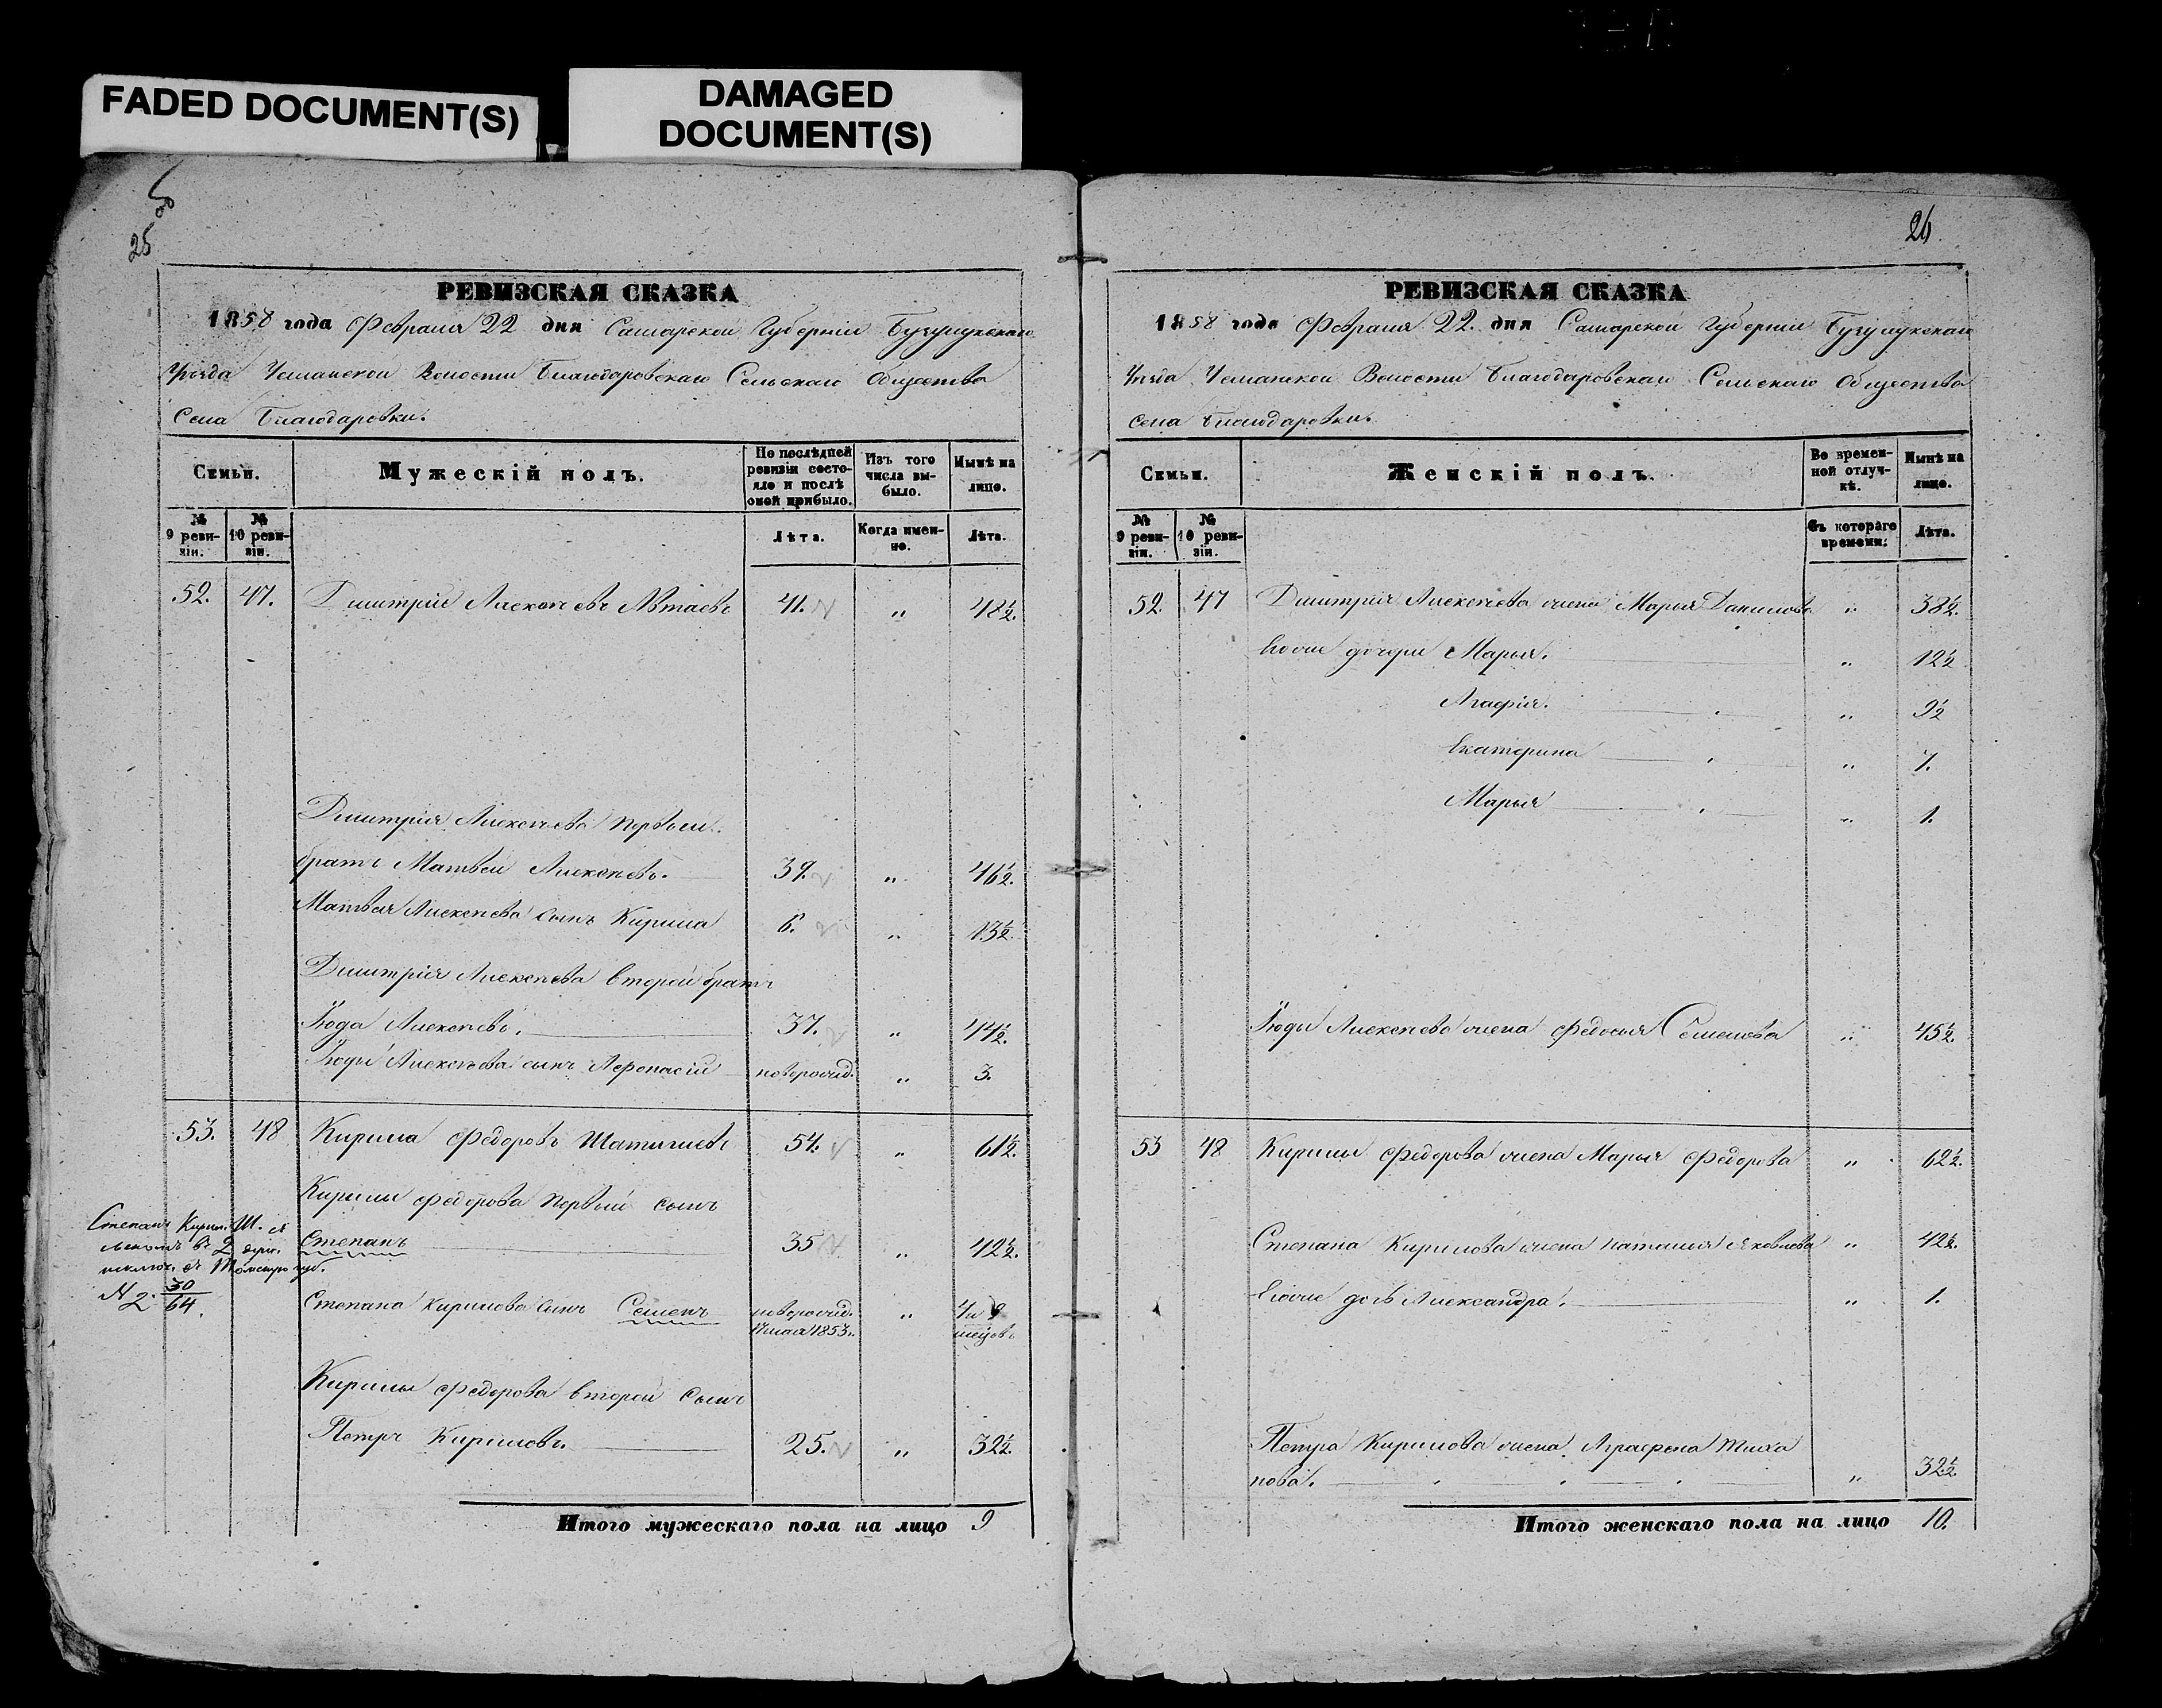 FADED DOCUMENT(S)
DAMAGED
DOCUMENT(S)
25
РЕВИЗСКАЯ СКАЗКА
1858 года Февраля 22 дня Самарской Губерніи Бугурусланскаго
Уѣзда Волости Благодаровскаго Сельскаго Общества
Села Благодаровки.
Семьи.
Мужескій полъ.
По послѣдней
ревизіи состо-
яло и послѣ
оной прибыло.
Изъ того
числа вы-
было.
Нынѣ на
лицо.
№
9 реви-
зіи.
№
10 реви-
зіи.
Лѣта.
Когда имен-
но.
Лѣта.
52. 47. Дмитрій Алексеевъ 41. „ 48½.
Дмитрія Алексеева первый
братъ Матвей Алексеевъ. 39. „ 46½.
Матвея Алексеева сынъ Кирила 6. „ 13½
Дмитрія Алексеева второй братъ
Алексеевъ. 37. „ 44½.
Алексеева сынъ Афонасій новорожд. „ 3.
53. 48 Кирила Федоровъ 54. „ 61½.
Кирилы Федорова первый сынъ
Степанъ 35 „ 42½.
Степана Кирилова сынъ Семенъ новорожд. „ 4 и 9
1853. месецовъ
Кирилы Федорова второй сынъ
Петръ Кириловъ. 25. „ 32½.
Степанъ Кирил. Ш. съ
сыномъ въ 2
исключ. въ Томскую губ.
№ 2. 30/64.
Итого мужескаго пола на лицо 9
26.
РЕВИЗСКАЯ СКАЗКА
1858 года Февраля 22. дня Самарской Губерніи Бугурусланскаго
Уѣзда Волости Благодаровскаго Сельскаго Общества
Села Благодаровки.
Семьи.
Женскій полъ.
Во времен-
ной отлуч-
кѣ.
Нынѣ на
лицо.
№
9 реви-
зіи.
№
10 реви-
зіи.
Съ котораго
времени.
Лѣта.
52. 47 Дмитрія Алексеева жена Марья Данилова „ 38½.
Ево же дочери Марья. „ 12½
Агафія. „ 9½
Екатерина „ 7.
Марья „ 1.
Алексеева жена Федосья Семенова „ 45½.
53 48 Кирилы Федорова жена Марья Федорова „ 62½.
Степана Кирилова жена Наталья Яковлева „ 42½.
Ево же дочь Александра. „ 1.
Петра Кирилова жена Аграфена Тиха
нова. „ 32½.
Итого женскаго пола на лицо 10.